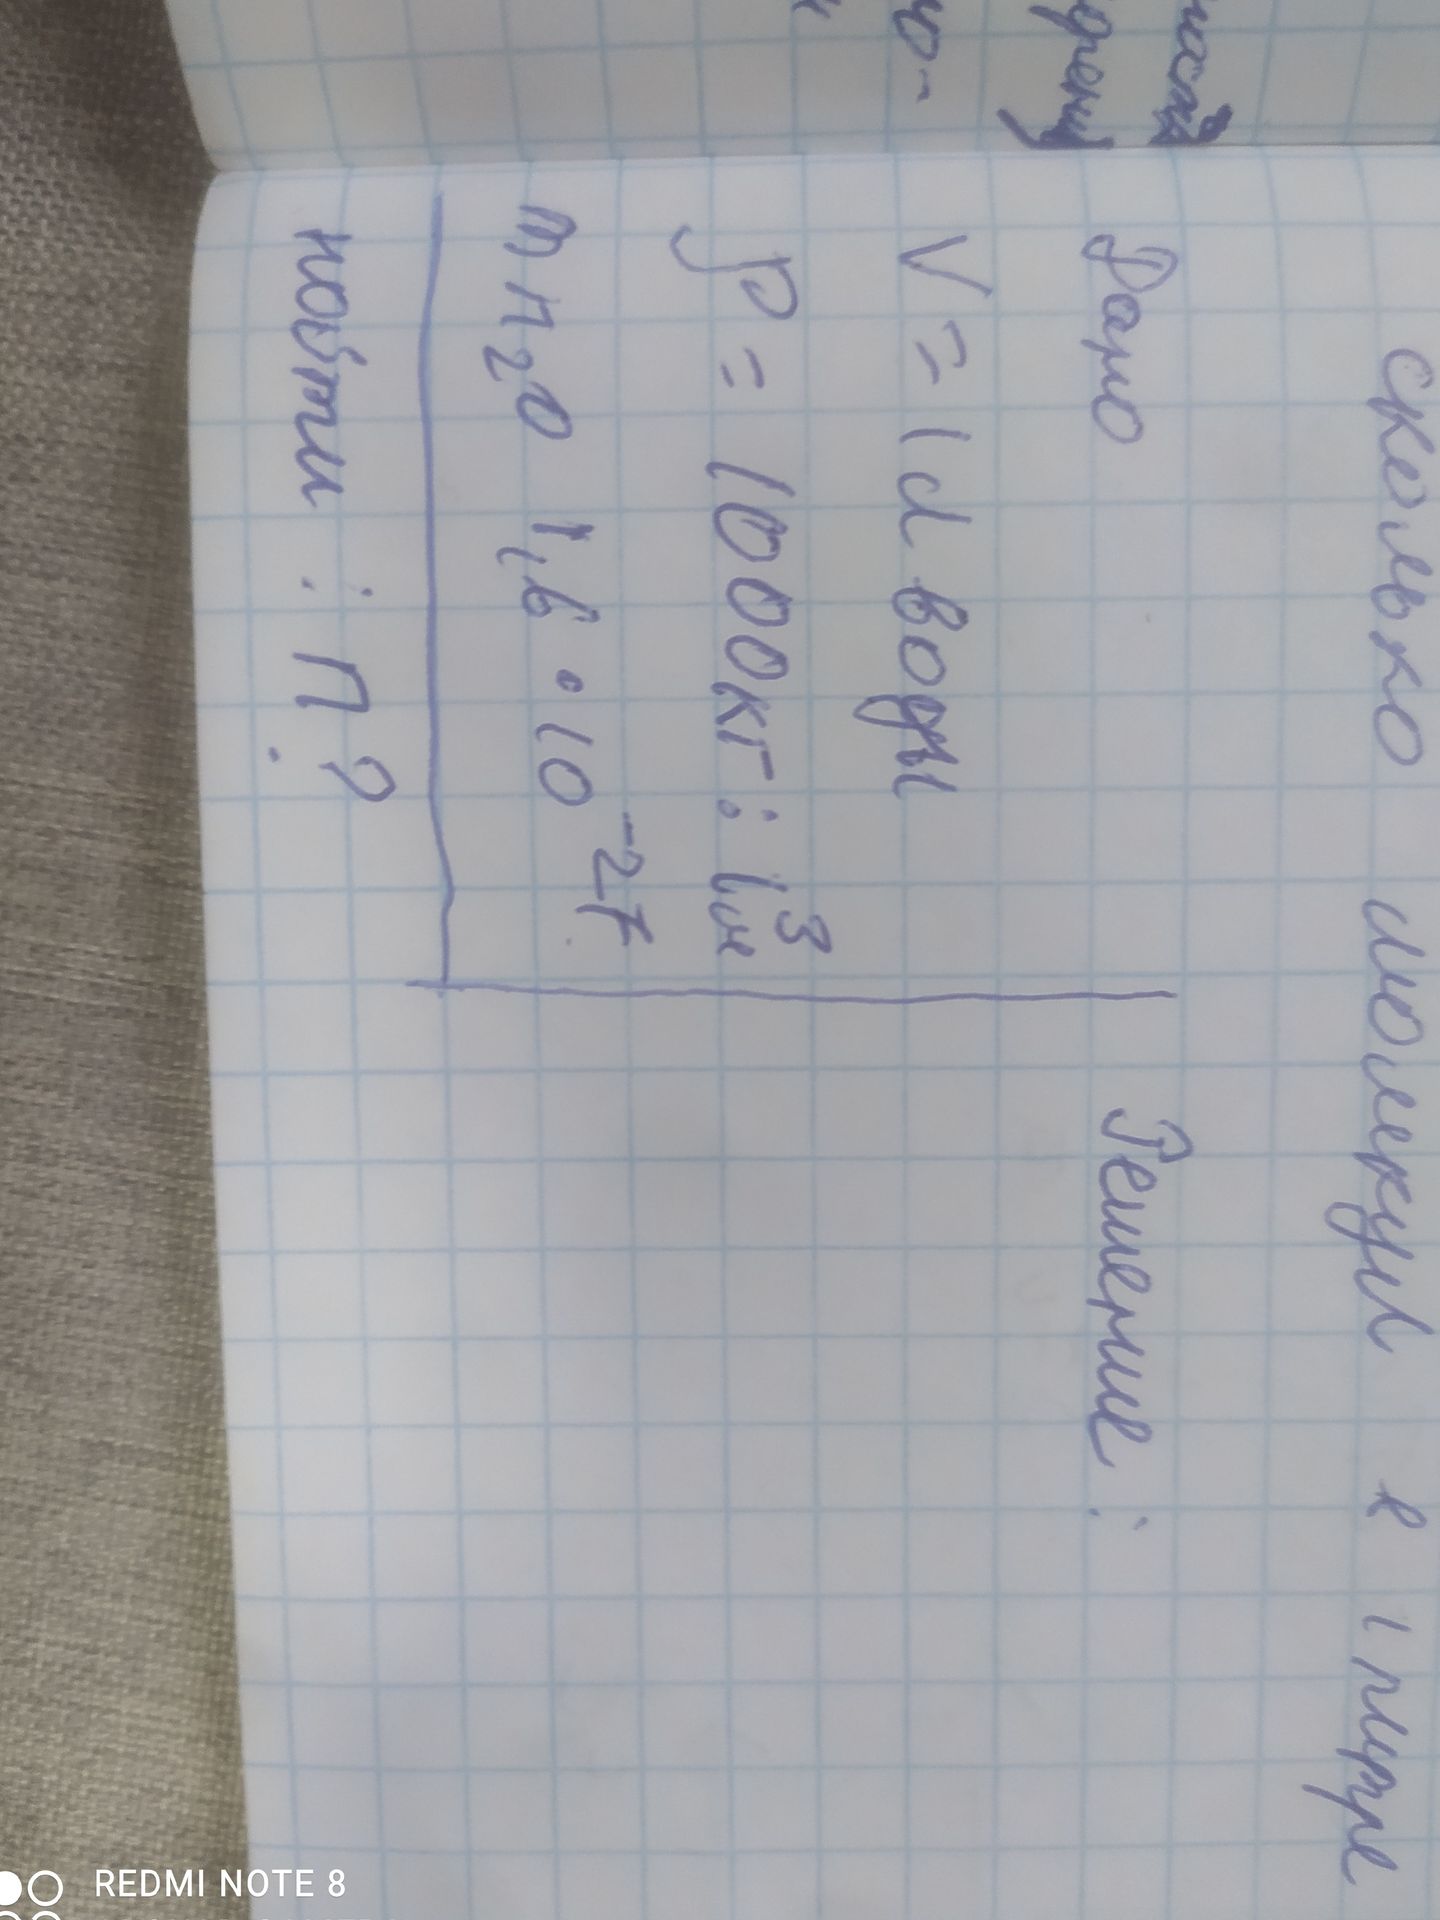 сколько молекул в 1 литре
Дано
Решение:
V = 1л воды
ρ = 1000кг : 1м³
mH₂O 1,6 · 10⁻²⁷
найти : n?
REDMI NOTE 8